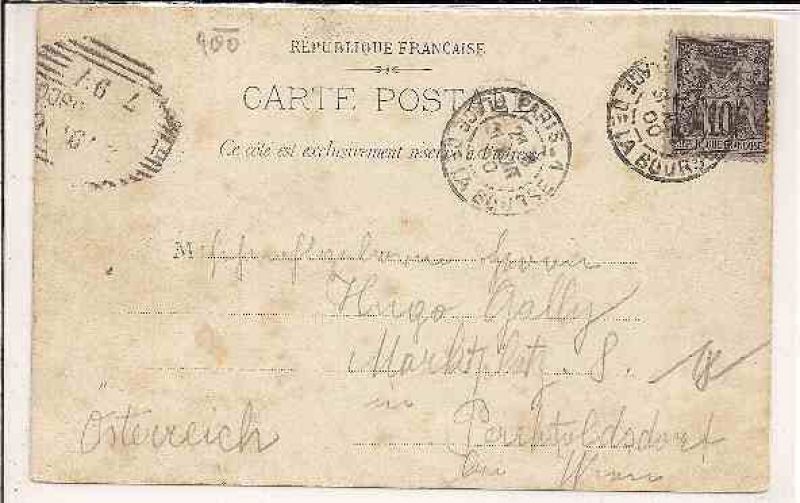 900
RÉPUBLIQUE FRANÇAISE
CARTE POSTA
Ce côté est exclusivement réservé à l'adresse
PARIS-1
LA BOURSE
DE LA BOURSE
10
REPUBLIQUE FRANCAISE
M
Hugo Gally
Marktplatz 8.
in
Perchtoldsdorf
bei Wien
Österreich